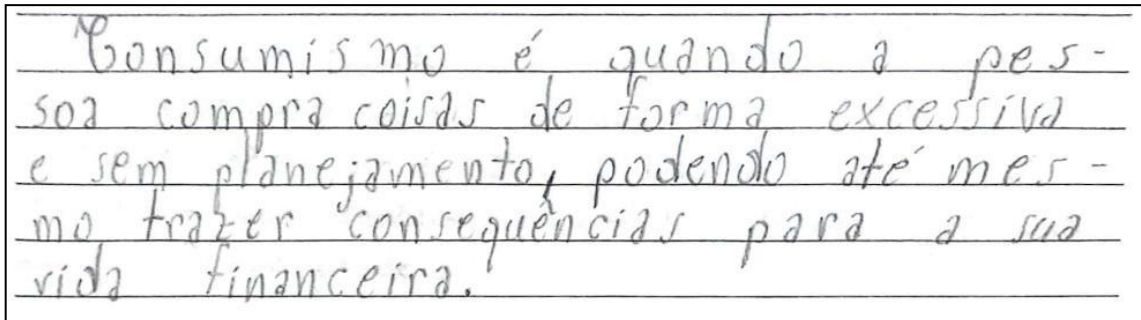 Consumismo é quando a pes-
soa compra coisas de forma excessiva
e sem planejamento, podendo até mes-
mo trazer consequências para a sua
vida financeira.